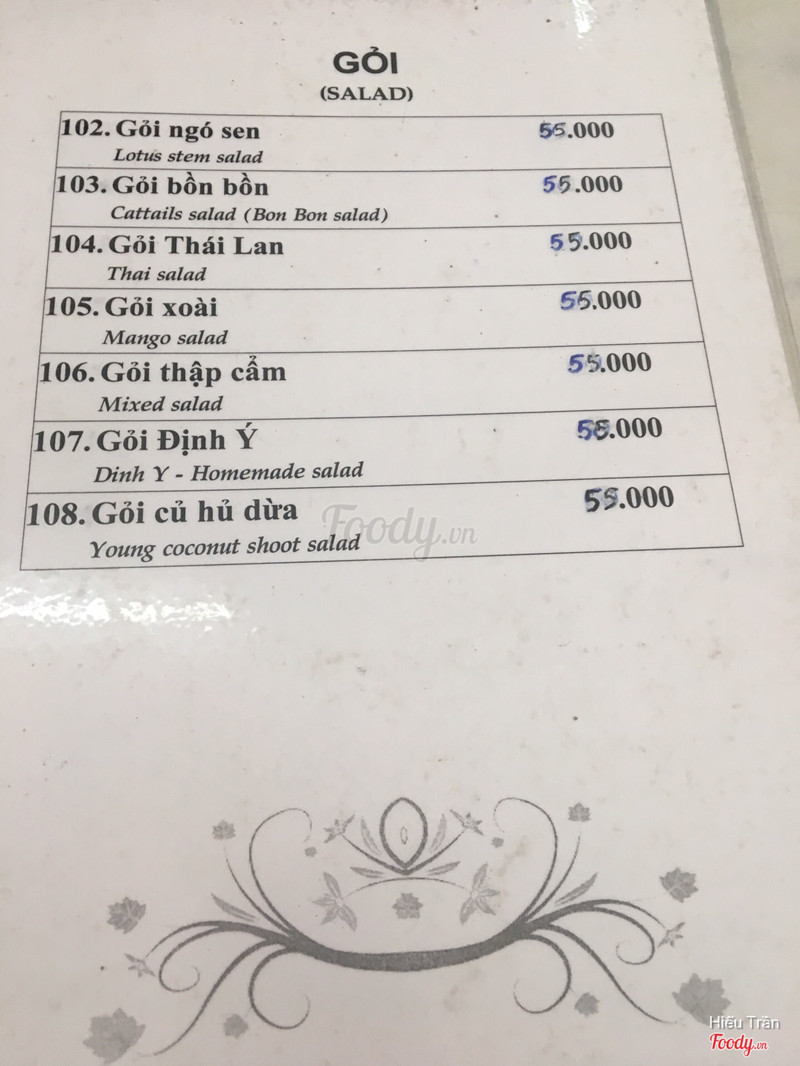 GỎI
(SALAD)
102. Gỏi ngó sen 55.000
Lotus stem salad
103. Gỏi bồn bồn 55.000
Cattails salad (Bon Bon salad)
104. Gỏi Thái Lan 55.000
Thai salad
105. Gỏi xoài 55.000
Mango salad
106. Gỏi thập cẩm 55.000
Mixed salad
107. Gỏi Định Ý 55.000
Dinh Y - Homemade salad
108. Gỏi củ hủ dừa 55.000
Young coconut shoot salad
Foody.vn
Hiếu Trần
Foody.vn